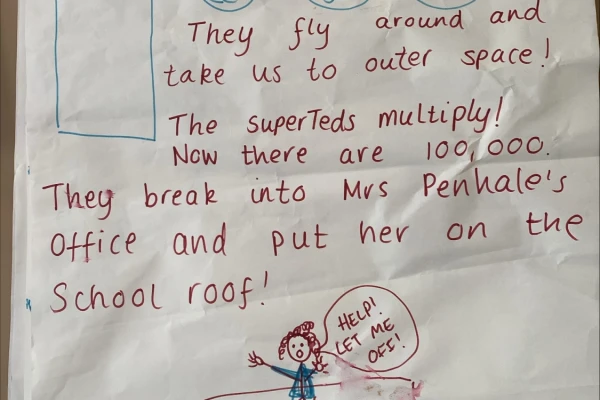 They fly around and
take us to outer space!
The superTeds multiply!
Now there are 100,000.
They break into Mrs Penhale's
office and put her on the
School roof!
HELP!
LET ME
OFS!